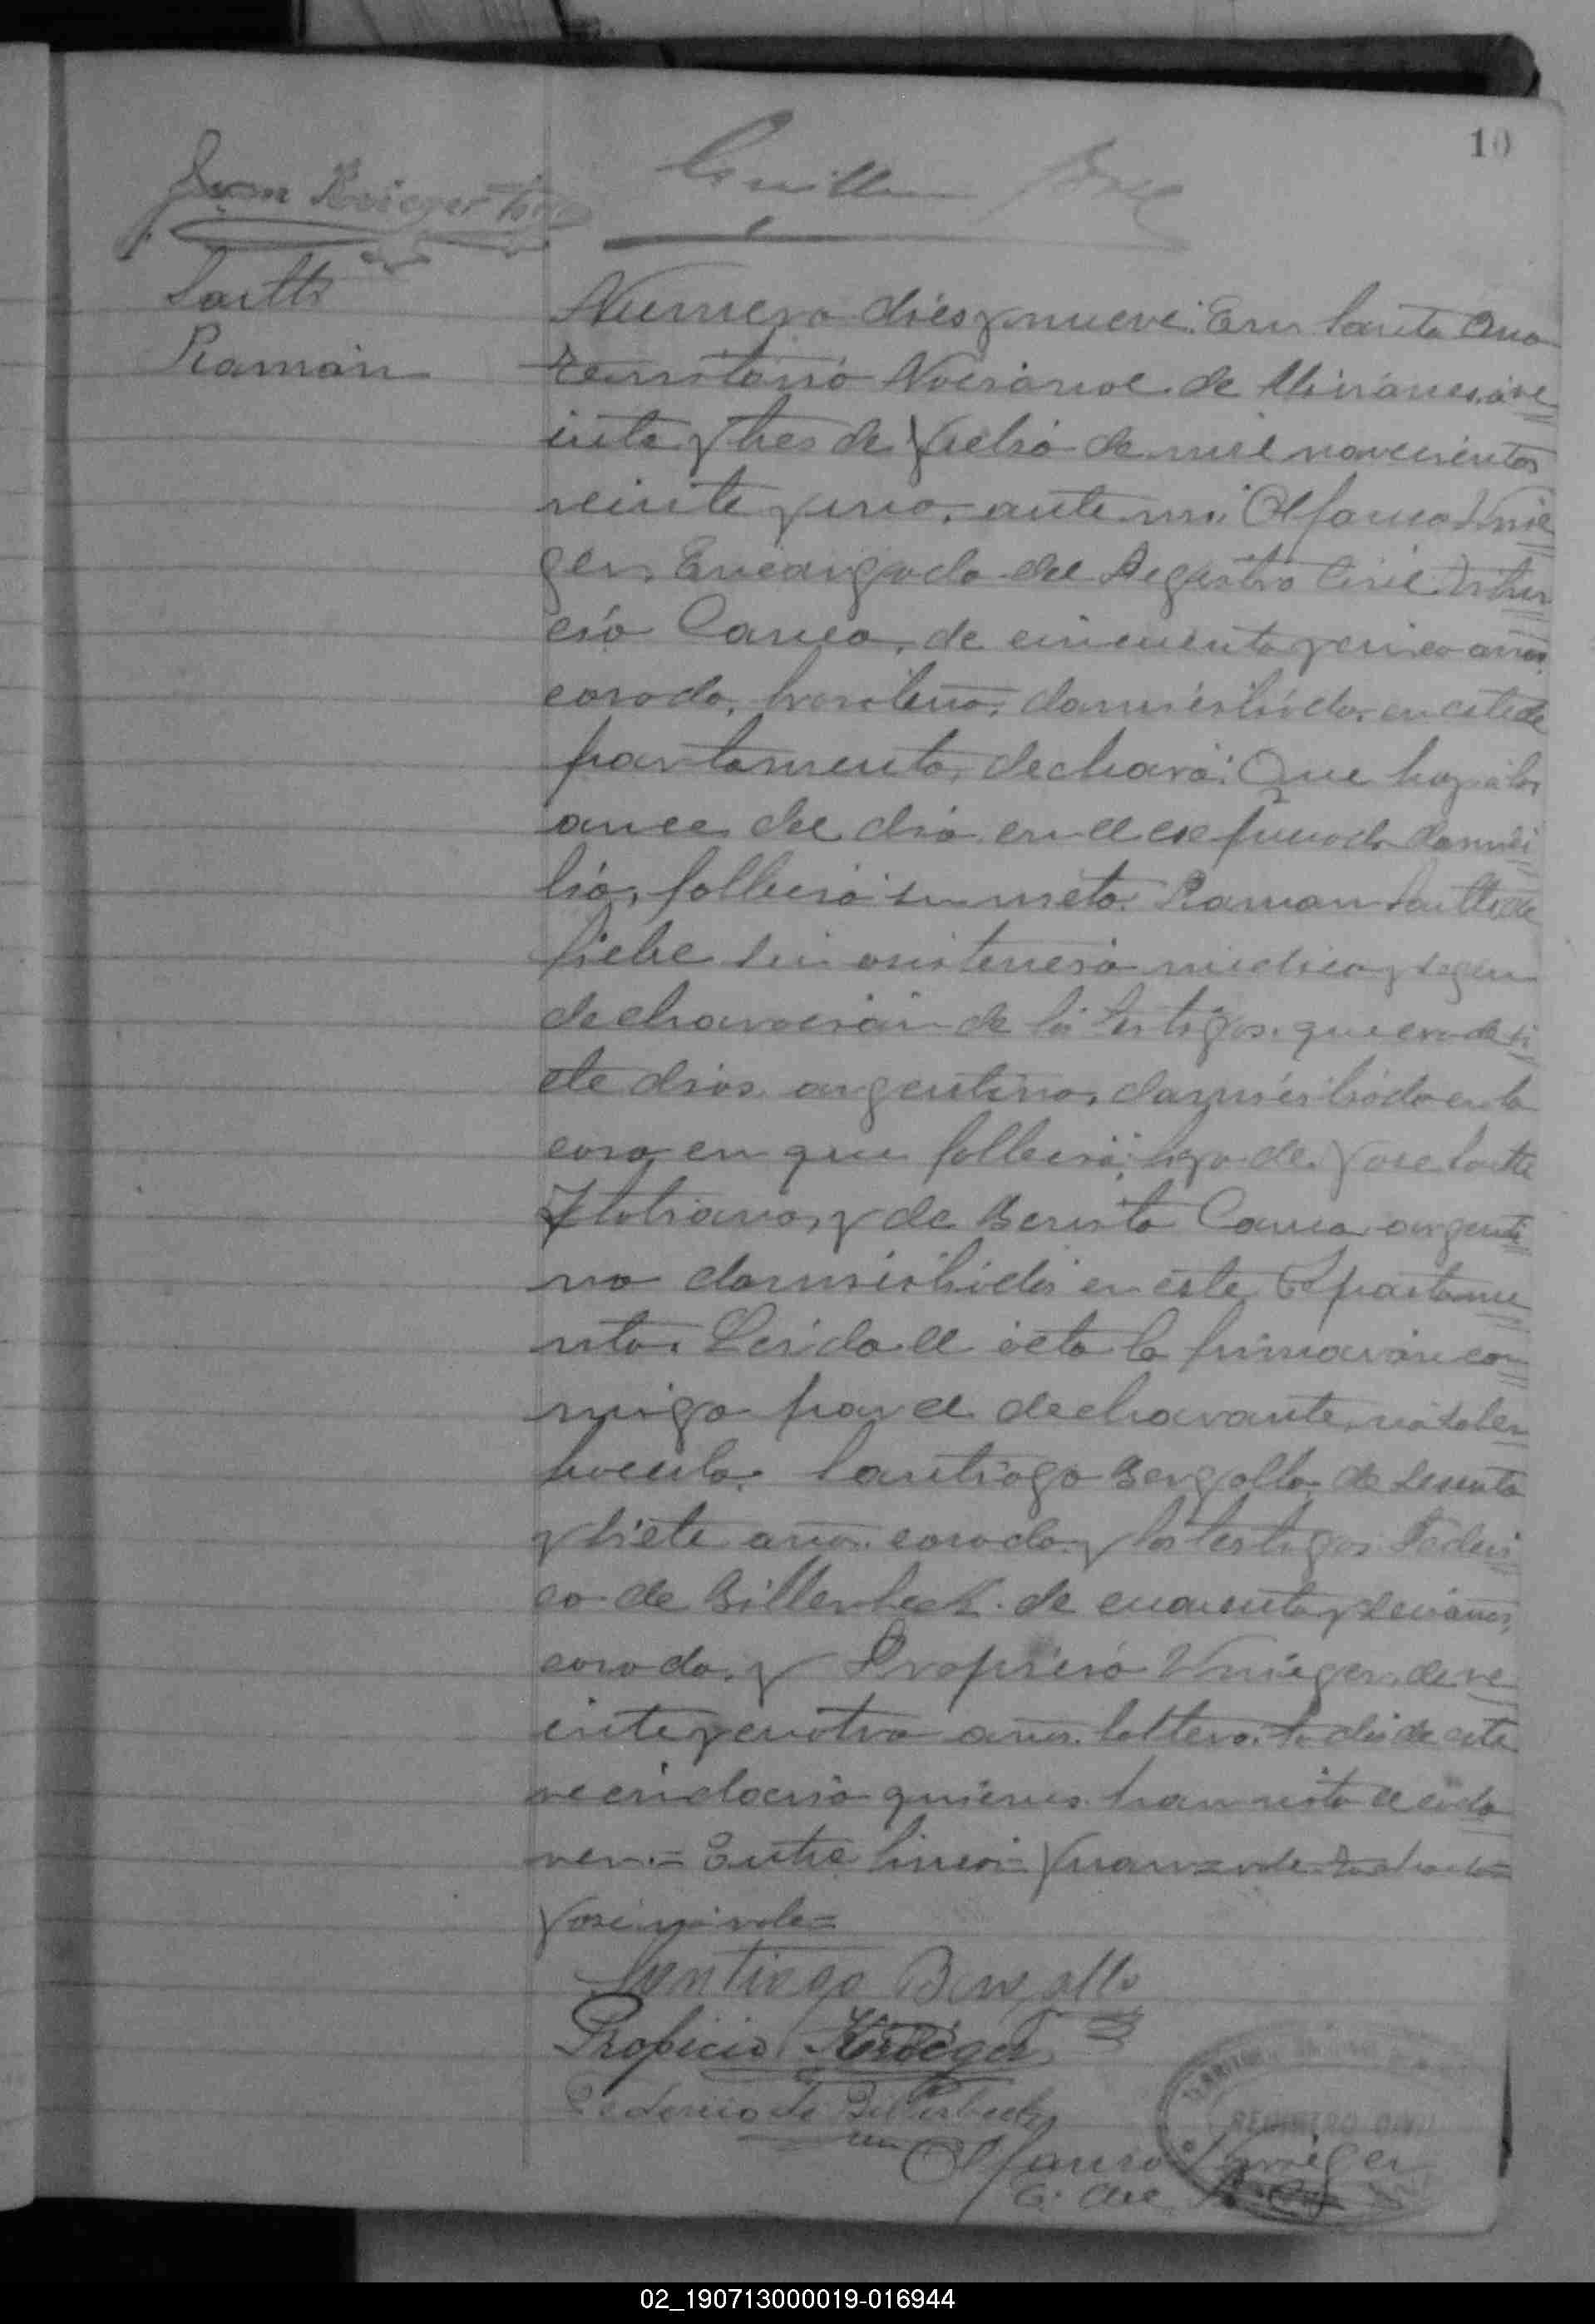 10
Juan Krieger
Guillermo
Sartti
Ramón
Numero dies y nueve: En Santa Ana
Territorio Nacional de Misiones, a ve
inte y tres de Julio de mil novecientos
veinte y uno, ante mi Alfonso Krie
ger, Encargado del Registro Civil,
cio Cance, de cincuenta y cinco años,
casado, brasilero, domiciliado en este de
partamento, declaró: Que hoy a las
once del dia en el espresado domici
lio, falleció su nieto Ramon Sartti de
fiebre sin asistencia medica y segun
declaración de los testigos que era de si
ete dias argentino, domiciliado en la
casa en que falleció; hijo de Jose Sartti
Italiano, y de Benita Cance argenti
na domiciliados en este Departame
nto. Leida el acta la firmarón co
nmigo por el declarante, no saber
hacerlo. Santiago Bergallo de sesenta
y siete años casado, y los testigos Federi
co de Billerbeck de cuarenta y seis años,
casado, y Propicio Krieger, de ve
inte y cuatro años soltero, todos de esta
vecindario quienes han visto el cada
ver.= Entre lineas = Juan = vale = =
José no vale =
Santiago Bergallo
Propicio Krieger
Federico de Billerbeck
Alfonso Krieger
E. del
REGISTRO CIVIL
02_190713000019-016944